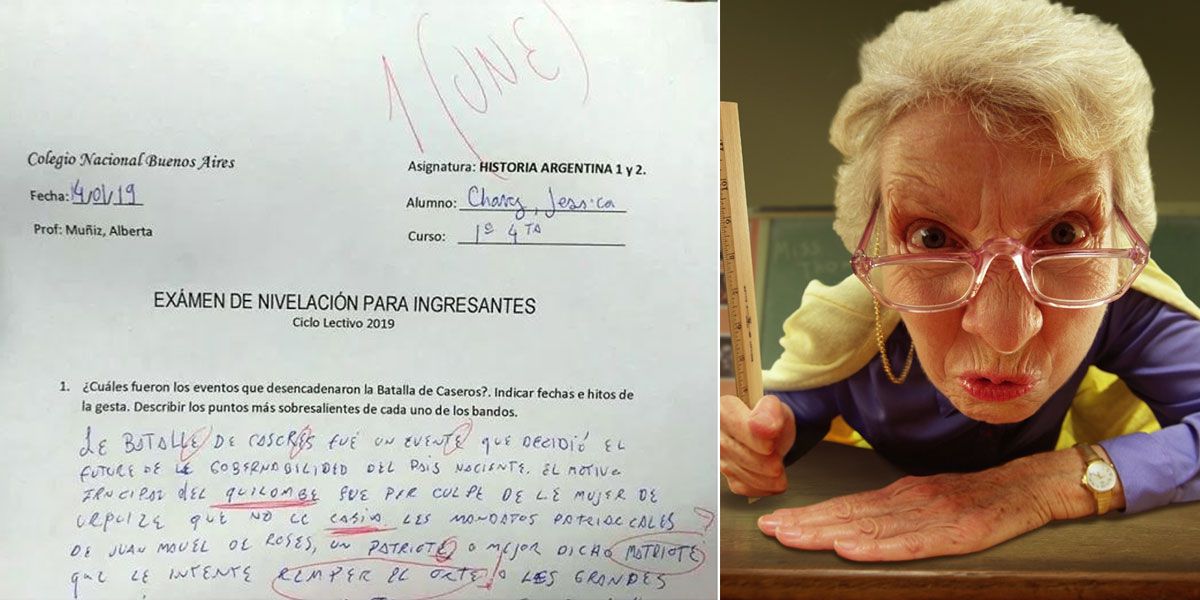 1 (UNE)
Colegio Nacional Buenos Aires
Asignatura: HISTORIA ARGENTINA 1 y 2.
Fecha: 14/01/19
Alumno: Chavez, Jessica
Prof: Muñiz, Alberta
Curso: 1º 4TA
EXÁMEN DE NIVELACIÓN PARA INGRESANTES
Ciclo Lectivo 2019
1. ¿Cuáles fueron los eventos que desencadenaron la Batalla de Caseros?. Indicar fechas e hitos de
la gesta. Describir los puntos más sobresalientes de cada uno de los bandos.
LE BATALLE DE CASERES FUÉ UN EVENTE QUE DECIDIÓ EL
FUTURE DE LE GOBERNABILIDED DEL PAÍS NACIENTE. EL MOTIVE
PRINCIPAL DEL QUILOMBE FUE PER CULPE DE LE MUJER DE
URQUIZE QUE NO LE CABIA LES MANDATOS PATRIARCALES
DE JUAN MANUEL DE ROSES, UN PATRIOTE O MEJOR DICHO MATRIOTE
QUE LE INTENTE REMPER EL ORTE A LES GRANDES
Miss